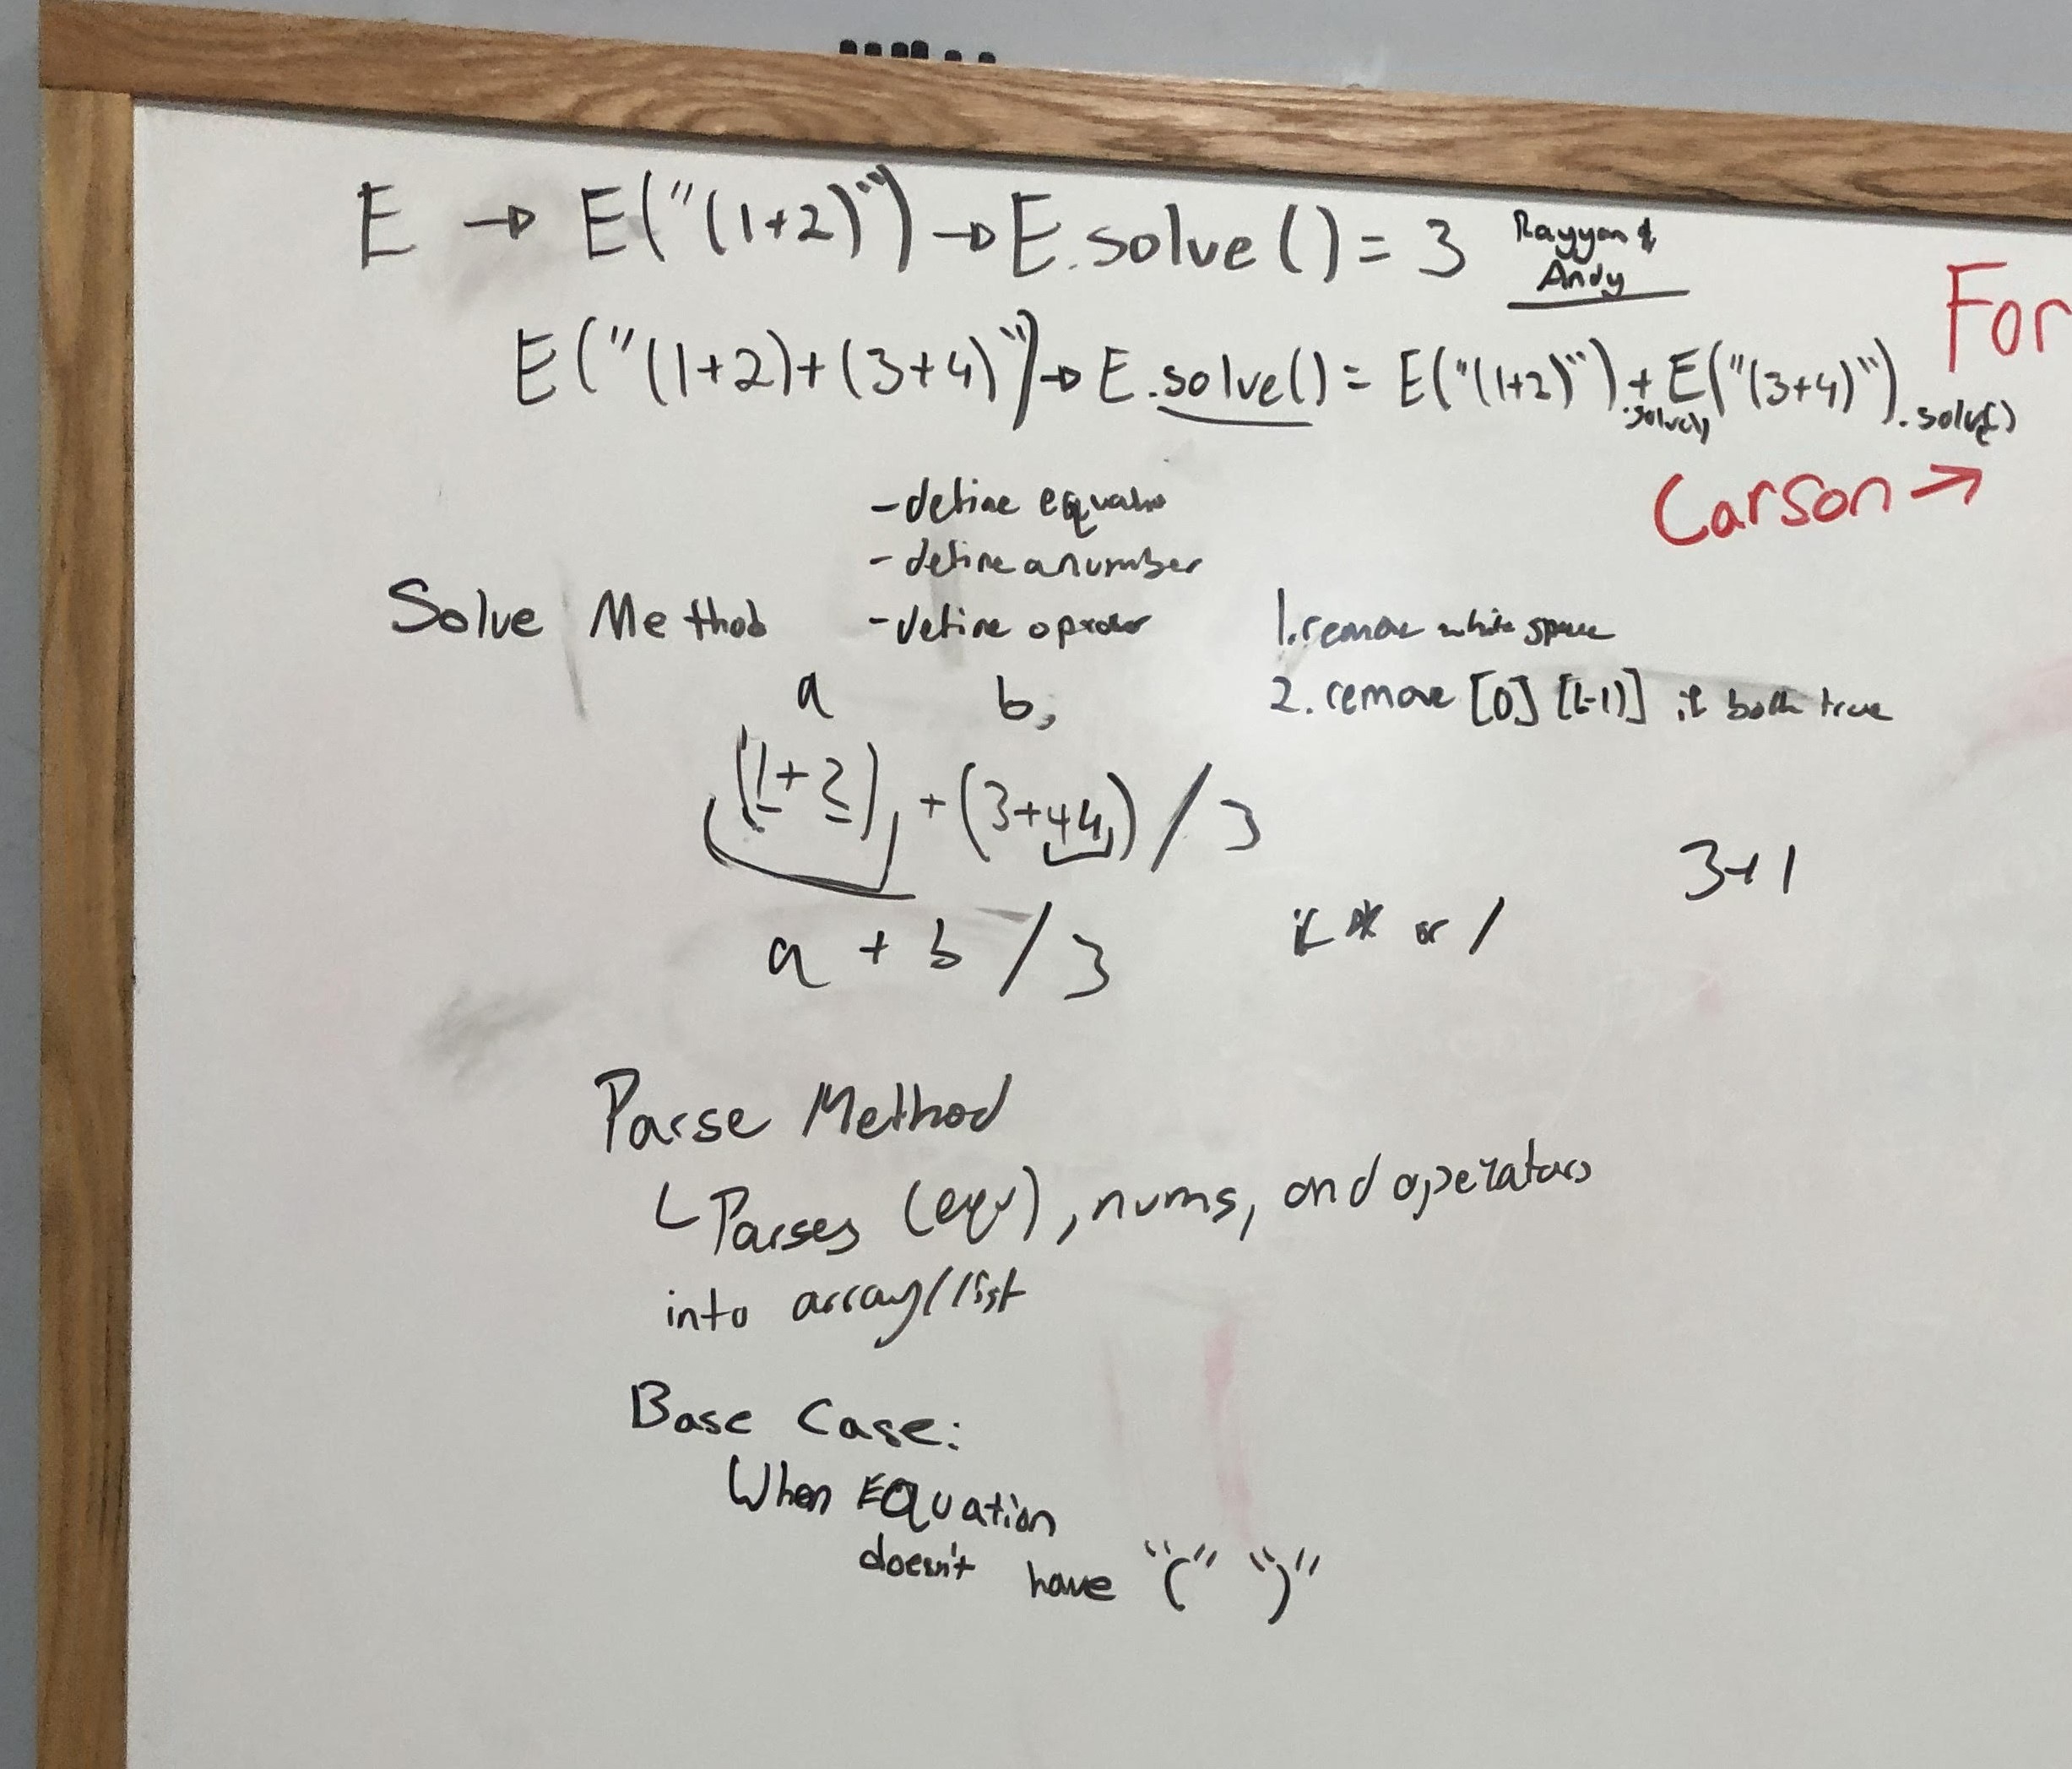 E → E("(1+2)") → E.solve() = 3
Rayyan &
Andy
For
E("(1+2)+(3+4)") → E.solve() = E("(1+2)").solve() + E("(3+4)").solve()
Carson →
- define equatio
- define a number
Solve Method
- define oprator
1. remove white space
2. remove [0] [L-1)] if both true
a b
(1+2) + (3+44) / 3
3+1
a + b / 3
if * or /
Parse Method
└ Parses (equ), nums, and operators
into array/list
Base Case:
When EQuation
doesn't have "(" ")"